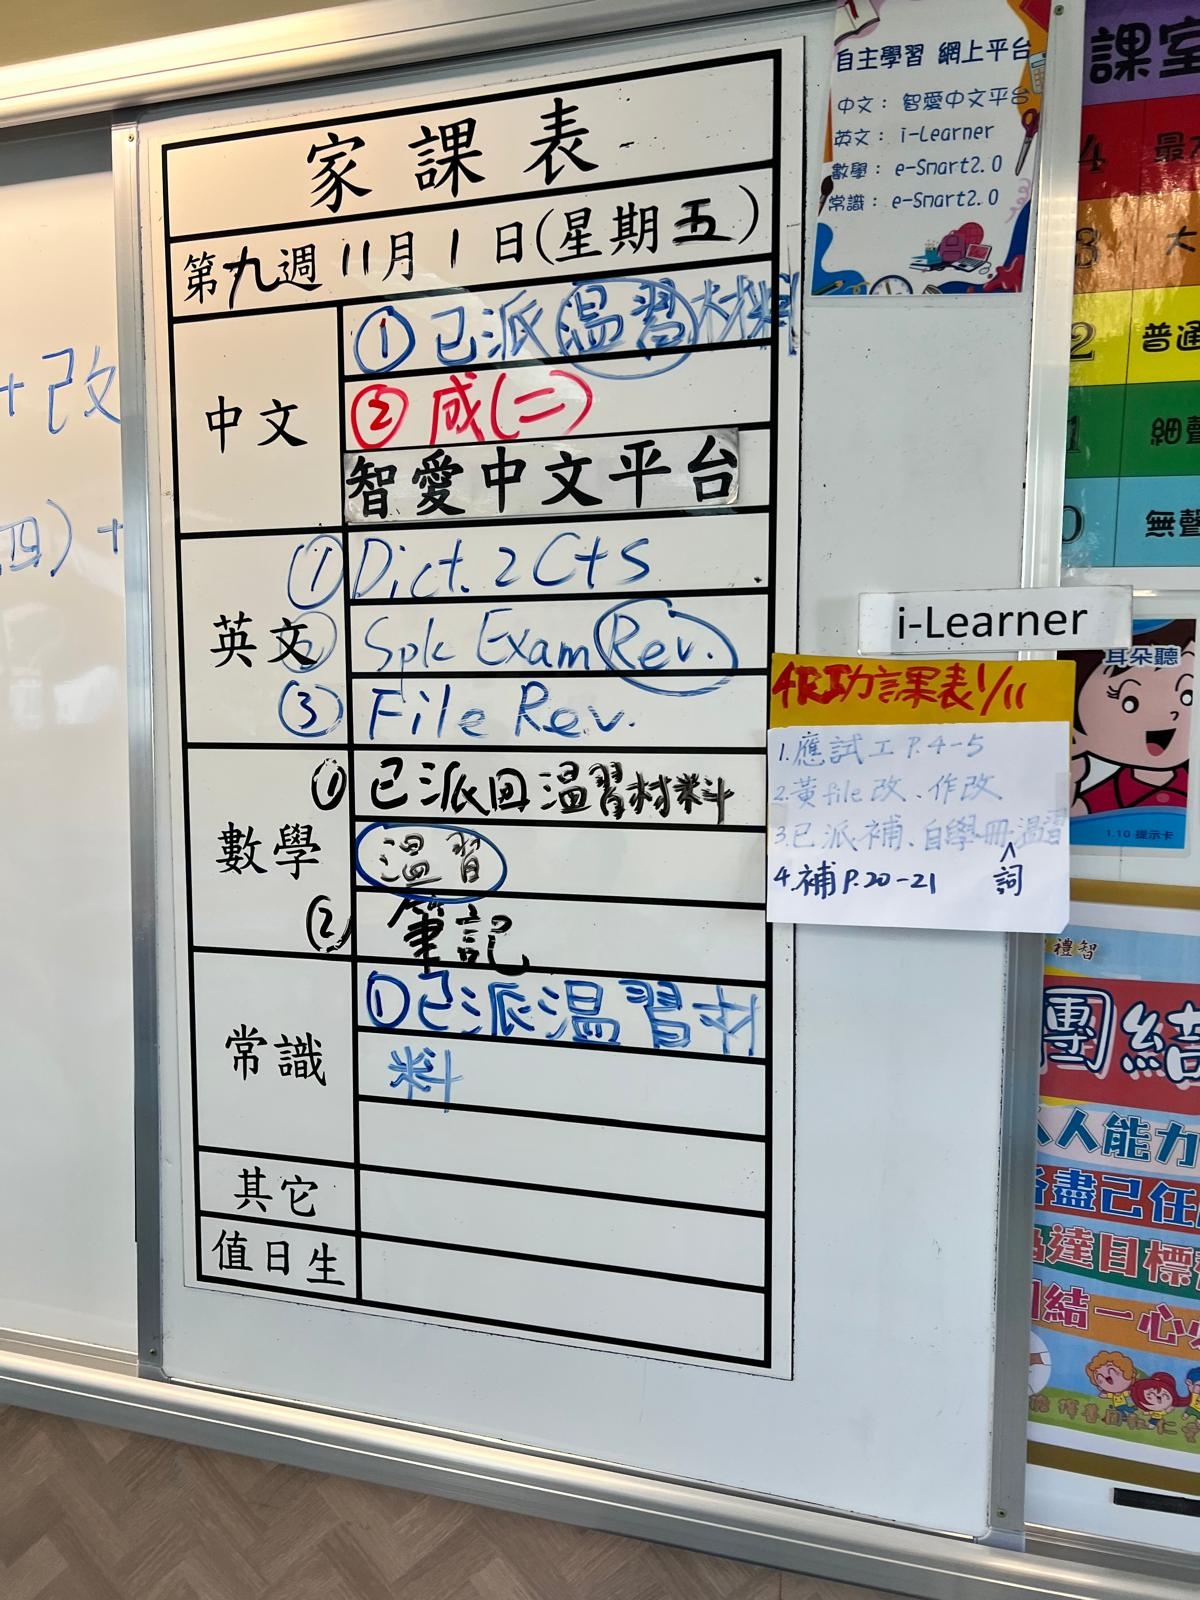 家課表
第九週 11月1日(星期五)
中文
① 已派温習材料
② 成(二)
智愛中文平台
英文
① Dict. 2 C+S
② Spk Exam Rev.
③ File Rev.
數學
① 已派回温習材料
温習
② 筆記
常識
① 已派温習材
料
其它
值日生
+改
四) +
自主學習 網上平台
中文： 智愛中文平台
英文： i-Learner
數學： e-Smart2.0
常識： e-Smart2.0
i-Learner
功課表1/11
1. 應試工 P.4-5
2. 黃file改、作改
3. 已派補、自學冊、温習
詞
4. 補 P.20-21
課室
4
3 大
2 普通
1 細聲
0 無聲
耳朵聽
1.10 提示卡
禮智
團結
人人能力
盡己任
達目標
結一心